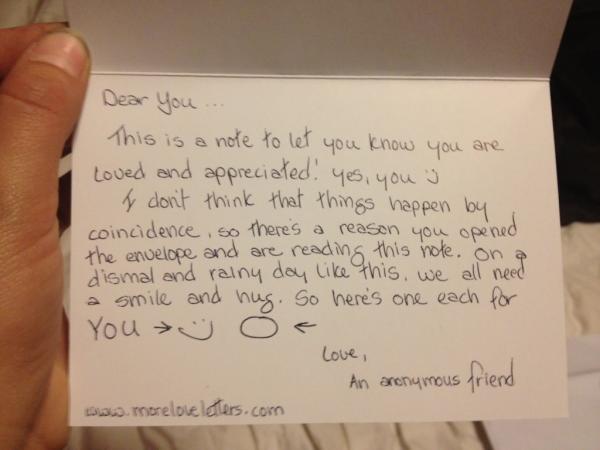 Dear You ...
This is a note to let you know you are
Loved and appreciated! Yes, you :)
I don't think that things happen by
coincidence, so there's a reason you opened
the envelope and are reading this note. On a
dismal and rainy day like this, we all need
a smile and hug. So here's one each for
YOU → :) O ←
Love,
An anonymous friend
www.moreloveletters.com